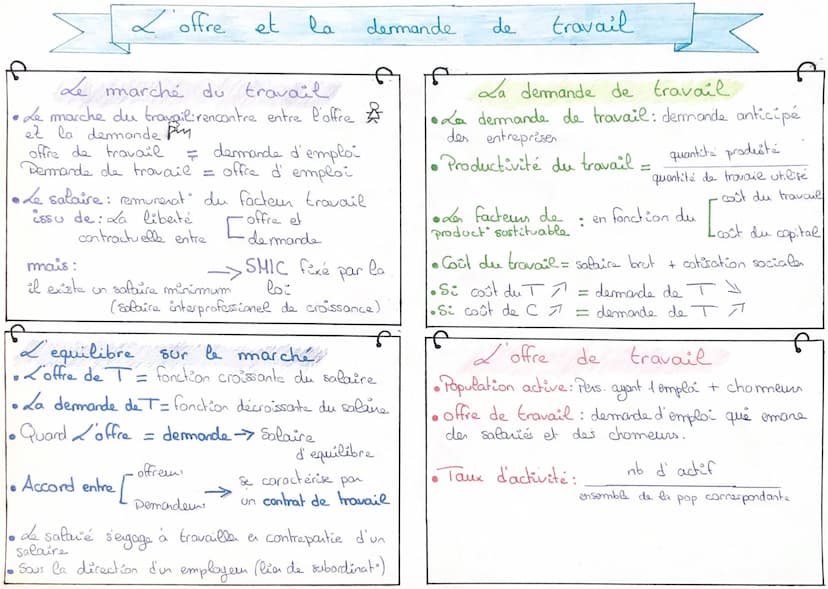 L'offre et la demande de travail
Le marché du travail
• Le marche du travail: rencontre entre l'offre
et la demande
offre de travail = demande d'emploi
Demande de travail = offre d'emploi
• Le salaire: remunerat° du facteur travail
issu de: La liberté
contractuelle entre
offre et
demande
mais:
il existe un salaire minimum
→ SMIC fixé par la
loi
(salaire interprofessionel de croissance)
La demande de travail
• La demande de travail: demande anticipé
des entreprises
• Productivité du travail =
quantité produité
quantité de travail utilisé
• Les facteurs de
product° sustituable
: en fonction du
coût du travail
coût du capital
• Coût du travail = salaire brut + cotisation sociales
• Si coût du T ↗ = demande de T ↘
• Si coût de C ↗ = demande de T ↗
L'equilibre sur le marché
• L'offre de T = fonction croissante du salaire
• La demande de T = fonction décroissante du salaire
• Quand L'offre = demande → Salaire
d'equilibre
• Accord entre
offreurs
Demandeurs
→ se caractérise par
un contrat de travail
• Le salarié s'engage à travaille en contrepartie d'un
salaire
• Sous la direction d'un employeur (lien de subordinat°)
L'offre de travail
• Population active: Pers. ayant 1 emploi + chomeurs
• offre de travail: demande d'emploi qui emane
des salariés et des chomeurs.
• Taux d'activité:
nb d'actif
ensemble de la pop correspondante